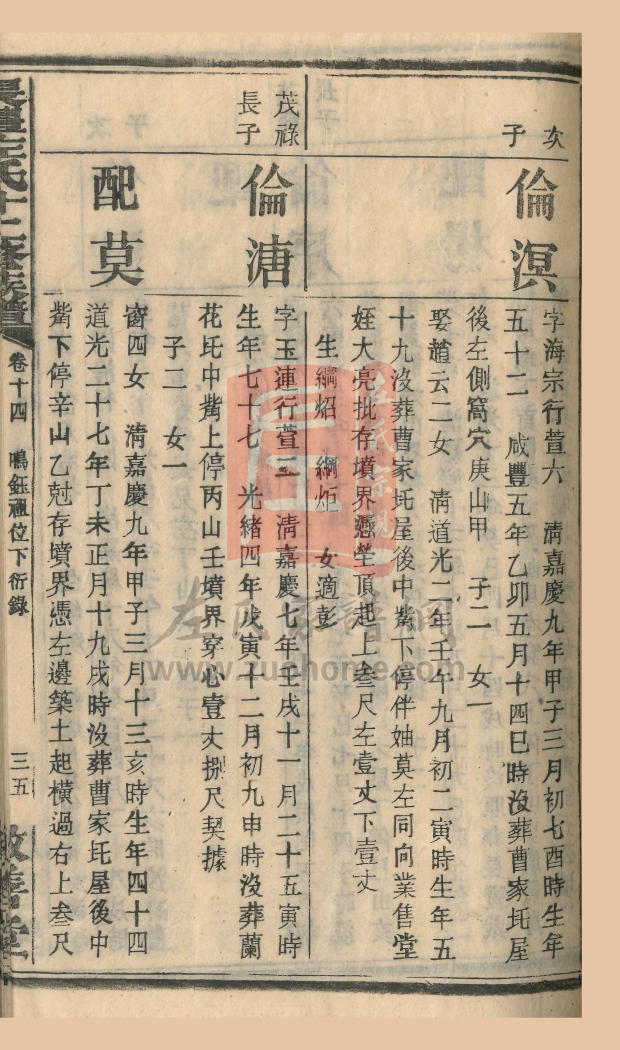 次
子
倫溟
字海宗行萱六 清嘉慶九年甲子三月初七酉時生年
五十二 咸豐五年乙卯五月十四巳時沒葬曹家圫屋
後左側窩穴庚山甲 子二 女一
娶趙云二女 清道光二年壬午九月初二寅時生年五
十九沒葬曹家圫屋後中觜下停伴妯莫左同向業售堂
姪大亮批存墳界憑塋頂起上叁尺左壹丈下壹丈
生綱焰 綱炬 女適彭
茂祿
長子
倫溏
字玉蓮行萱三 清嘉慶七年壬戌十一月二十五寅時
生年七十七 光緒四年戊寅十二月初九申時沒葬蘭
花圫中觜上停丙山壬墳界穿心壹丈捌尺契據
子二 女一
配莫
窗四女 清嘉慶九年甲子三月十三亥時生年四十四
道光二十七年丁未正月十九戌時沒葬曹家圫屋後中
觜下停辛山乙尅存墳界憑左邊築土起橫過右上叁尺
氏十二修族譜
卷十四 鳴鈺禮位下衍錄
三五
敦善堂
左氏宗親
左氏家譜網